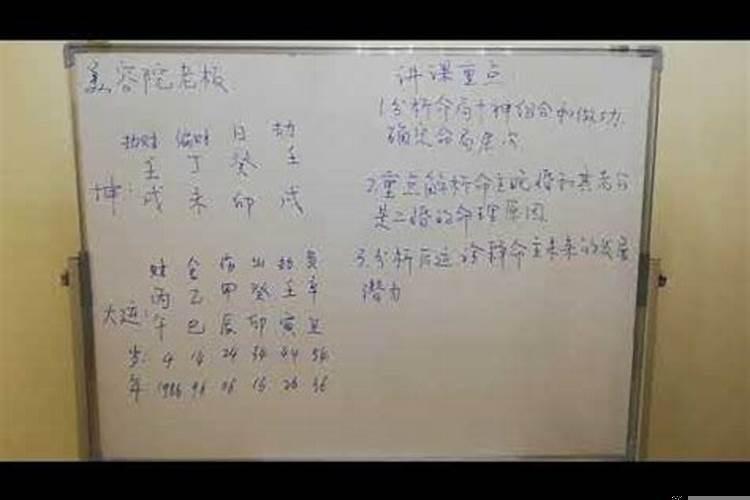 美容院老板
劫财 偏财 日 劫
壬 丁 癸 壬
坤: 戌 未 卯 戌
财 食 伤 比 劫 枭
丙 乙 甲 癸 壬 辛
大运: 午 巳 辰 卯 寅 丑
岁: 4 14 24 34 44 54
年: 1986 96 06 16 26 36
讲课重点
1.分析命局十神组合和做功,
确定命局层次
2.重点解析命主晚婚和其老公
是二婚的命理原因
3.分析后运诠释命主未来的发展
潜力